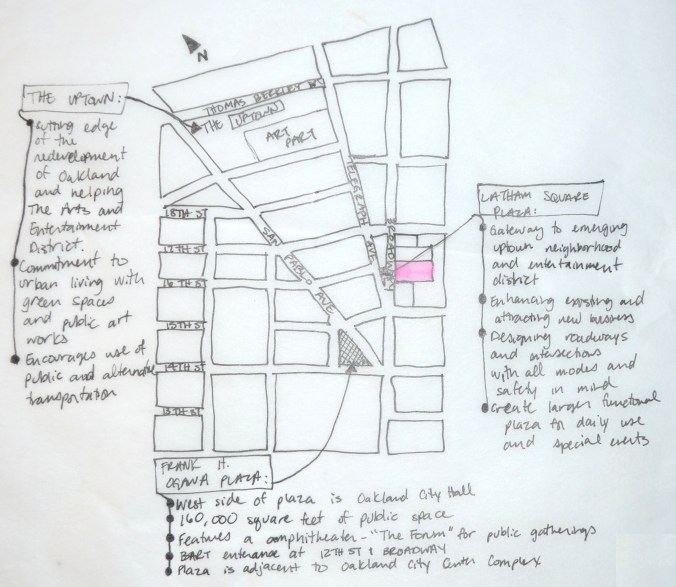 N
THE UPTOWN:
cutting edge
of the
redevelopment
of Oakland
and helping
The Arts and
Entertainment
District.
Commitment to
urban living with
green spaces
and public art
works
Encourages use of
public and alternative
transportation
THOMAS BERKLEY WY
THE UPTOWN
ART
PART
TELEGRAPH AVE
BROADWAY
SAN PABLO AVE
18TH ST
17TH ST
16TH ST
15TH ST
14TH ST
13TH ST
LATHAM SQUARE
PLAZA:
Gateway to emerging
uptown neighborhood
and entertainment
district
Enhancing existing and
attracting new business
Designing roadways
and intersections
with all modes and
safety in mind
Create larger functional
plaza for daily use
and special events
FRANK H.
OGAWA PLAZA:
West side of plaza is Oakland City Hall
160,000 square feet of public space
Features a amphitheater - "The Forum" for public gatherings
BART entrance at 12TH ST & BROADWAY
Plaza is adjacent to Oakland City Center Complex